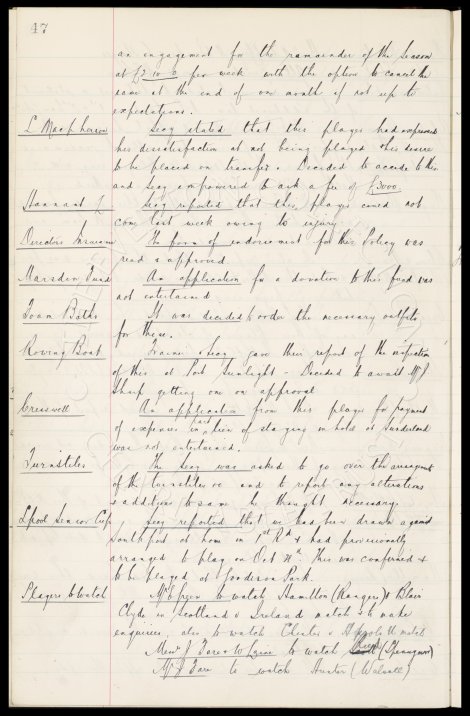 47
an engagement for the remainder of the Season
at £2.10.0 per week with the option to cancel the
same at the end of one month if not up to
expectations.
L Macpherson Secy stated that this player had expressed
his dissatisfaction at not being played & his desire
to be placed on transfer. Decided to accede to this
and Secy empowered to ask a fee of £3000.
Hannant J Secy reported that this player could not
come last week owing to injury.
Directors Insurance The form of endorsement for this Policy was
read & approved
Marsden Fund An application for a donation to this fund was
not entertained.
Foam Baths It was decided to order the necessary outfits
for these.
Rowing Boat Trainer & Secy gave their report of the inspection
of this at Port Sunlight - Decided to await Mr
Sharp getting one on approval
Cresswell An application from this player for payment
of expenses in lieu of staying in hotel at Sunderland
was not entertained.
Turnstiles The Secy was asked to go over the arrangement
of the turnstiles and to report any alterations
& additions to same he thought necessary
Lpool Senior Cup Secy reported that we had been drawn against
Southport at home in 1st Rd & had provisionally
arranged to play on Oct This was confirmed &
to be played at Goodison Park.
Players to Watch Mr Green to watch Hamilton (Rangers) & Blair
Clyde in Scotland v Ireland match & to make
enquiries, also to watch Chester v match
Messrs to watch
Mr to watch Hunter (Walsall)